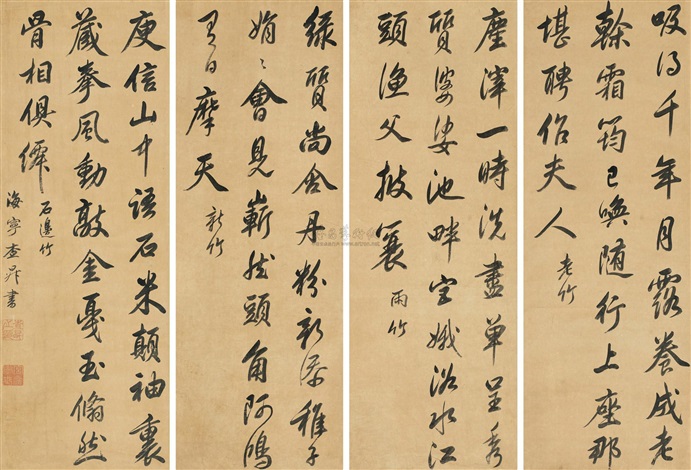 吸得千年月露養成老
榦霜筠已喚隨行上座那
堪聘作夫人
老竹
塵滓一時洗盡單呈秀
質婆娑池畔宓娥浴水江
頭漁父披蓑
雨竹
綠質尚含丹粉新添稚子
娟〻會見嶄然頭角阿鴻
有日摩天
新竹
庾信山中語石米顛袖裏
藏拳風動敲金戛玉翛然
骨相俱僊
石邊竹
海寧查昇書